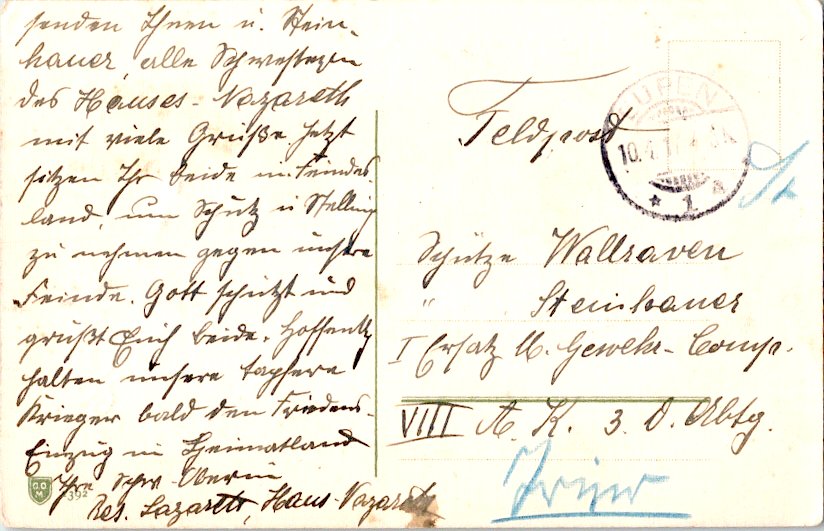 senden Ihnen u. Stein-
hauer, alle Schwestern
des Hauses-Nazareth
mit viele Grüße. Jetzt
sitzen Ihr beide in Feindes-
land, um Schutz u Stellung
zu nehmen gegen unsere
Feinde. Gott schützt und
grüßt Euch beide. Hoffentlich
halten unsere tapfere
Krieger bald den Friedens-
Einzug in Heimatland
Ihre Schw. Oberin
Res. Lazareth, Haus-Nazareth
Feldpost
EUPEN
10.4.17
* 1 a
Schütze Wallraven
" Steinhauer
I Ersatz M. Gewehr-Comp.
VIII A. K. 3. D. Abtg.
Trier
G.O.M
392